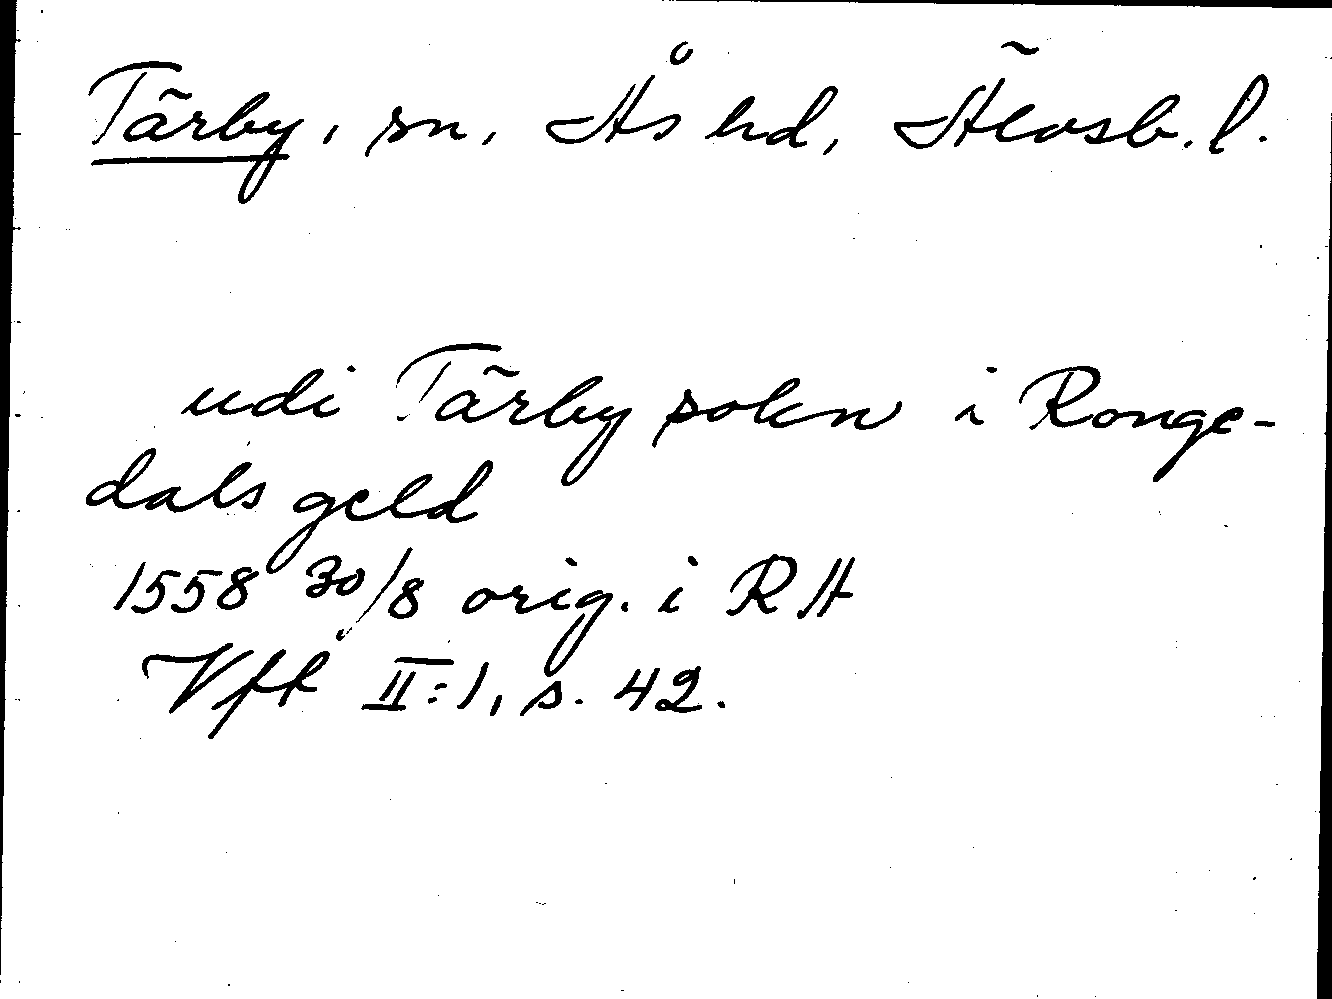 Tärby, sn, Ås hd, Älvsb. l.
udi Tärby sokn i Ronge-
dals geld
1558 30/8 orig. i RA
Vfk II:1, s. 42.